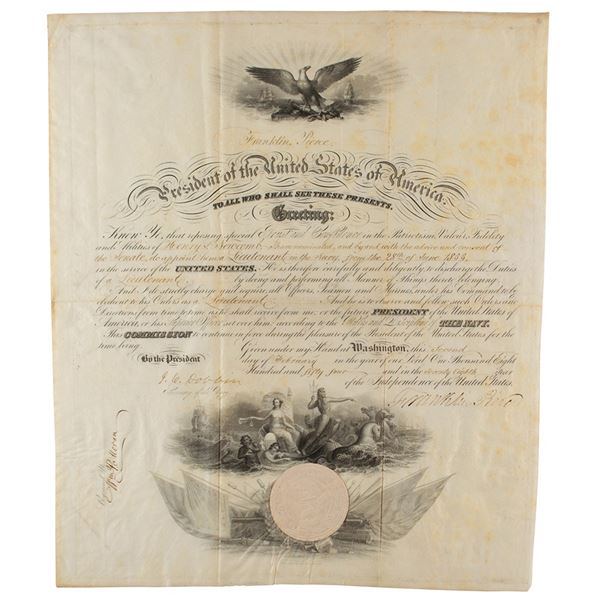 Franklin Pierce
President of the United States of America.
TO ALL WHO SHALL SEE THESE PRESENTS,
Greeting:
Know Ye, that reposing special Trust and Confidence in the Patriotism, Valour, Fidelity
and Abilities of Henry S. Newcomb I have nominated, and by and with the advice and consent of
the Senate, do appoint him a Lieutenant in the Navy from the 28th of June 1853,
in the service of the UNITED STATES. He is therefore carefully and diligently to discharge the Duties
of a Lieutenant by doing and performing all Manner of Things thereto belonging.
And I do strictly charge and require all Officers, Seamen and Marines, under his Command to be
obedient to his Orders as a Lieutenant And he is to observe and follow such Orders and
Directions, from time to time, as he shall receive from me, or the future PRESIDENT of the United States of
America, or his Superior Officer set over him, according to the Rules and Discipline of THE NAVY.
This COMMISSION to continue in force during the pleasure of the President of the United States for the
time being.
Given under my Hand at Washington, this Second
day of February in the year of our Lord One Thousand Eight
Hundred and fifty four and in the Seventy Eighth Year
of the Independence of the United States.
By the President
Franklin Pierce
J. C. Dobbin
Secretary of the Navy